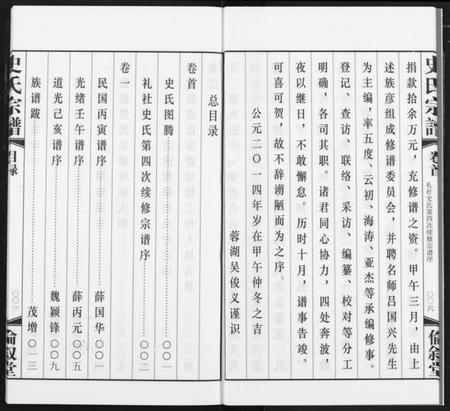 史氏宗譜
卷首
礼社史氏第四次续修宗谱序
〇〇六
倫叙堂
捐款拾余万元，充修谱之资。甲午三月，由上
述族彦组成修谱委员会，并聘名师吕国兴先生
为主编，率五度、云初、海涛、亚杰等承编修事。
登记、查访、联络、采访、编纂、校对等分工
明确，各司其职。诸君同心协力，四处奔波，
夜以继日，不敢懈怠。历时十月，谱事告竣。
可喜可贺，故不辞谫陋而为之序。
公元二〇一四年岁在甲午仲冬之吉
蓉湖吴俊义谨识
总目录
卷首
史氏图腾……〇〇一
礼社史氏第四次续修宗谱序……〇〇二
卷一
民国丙寅谱序……薛国华……〇〇一
光绪壬午谱序……薛丙元……〇〇五
道光己亥谱序……魏颖锋……〇〇九
族谱跋……茂增……〇一三
史氏宗譜
目录
倫叙堂